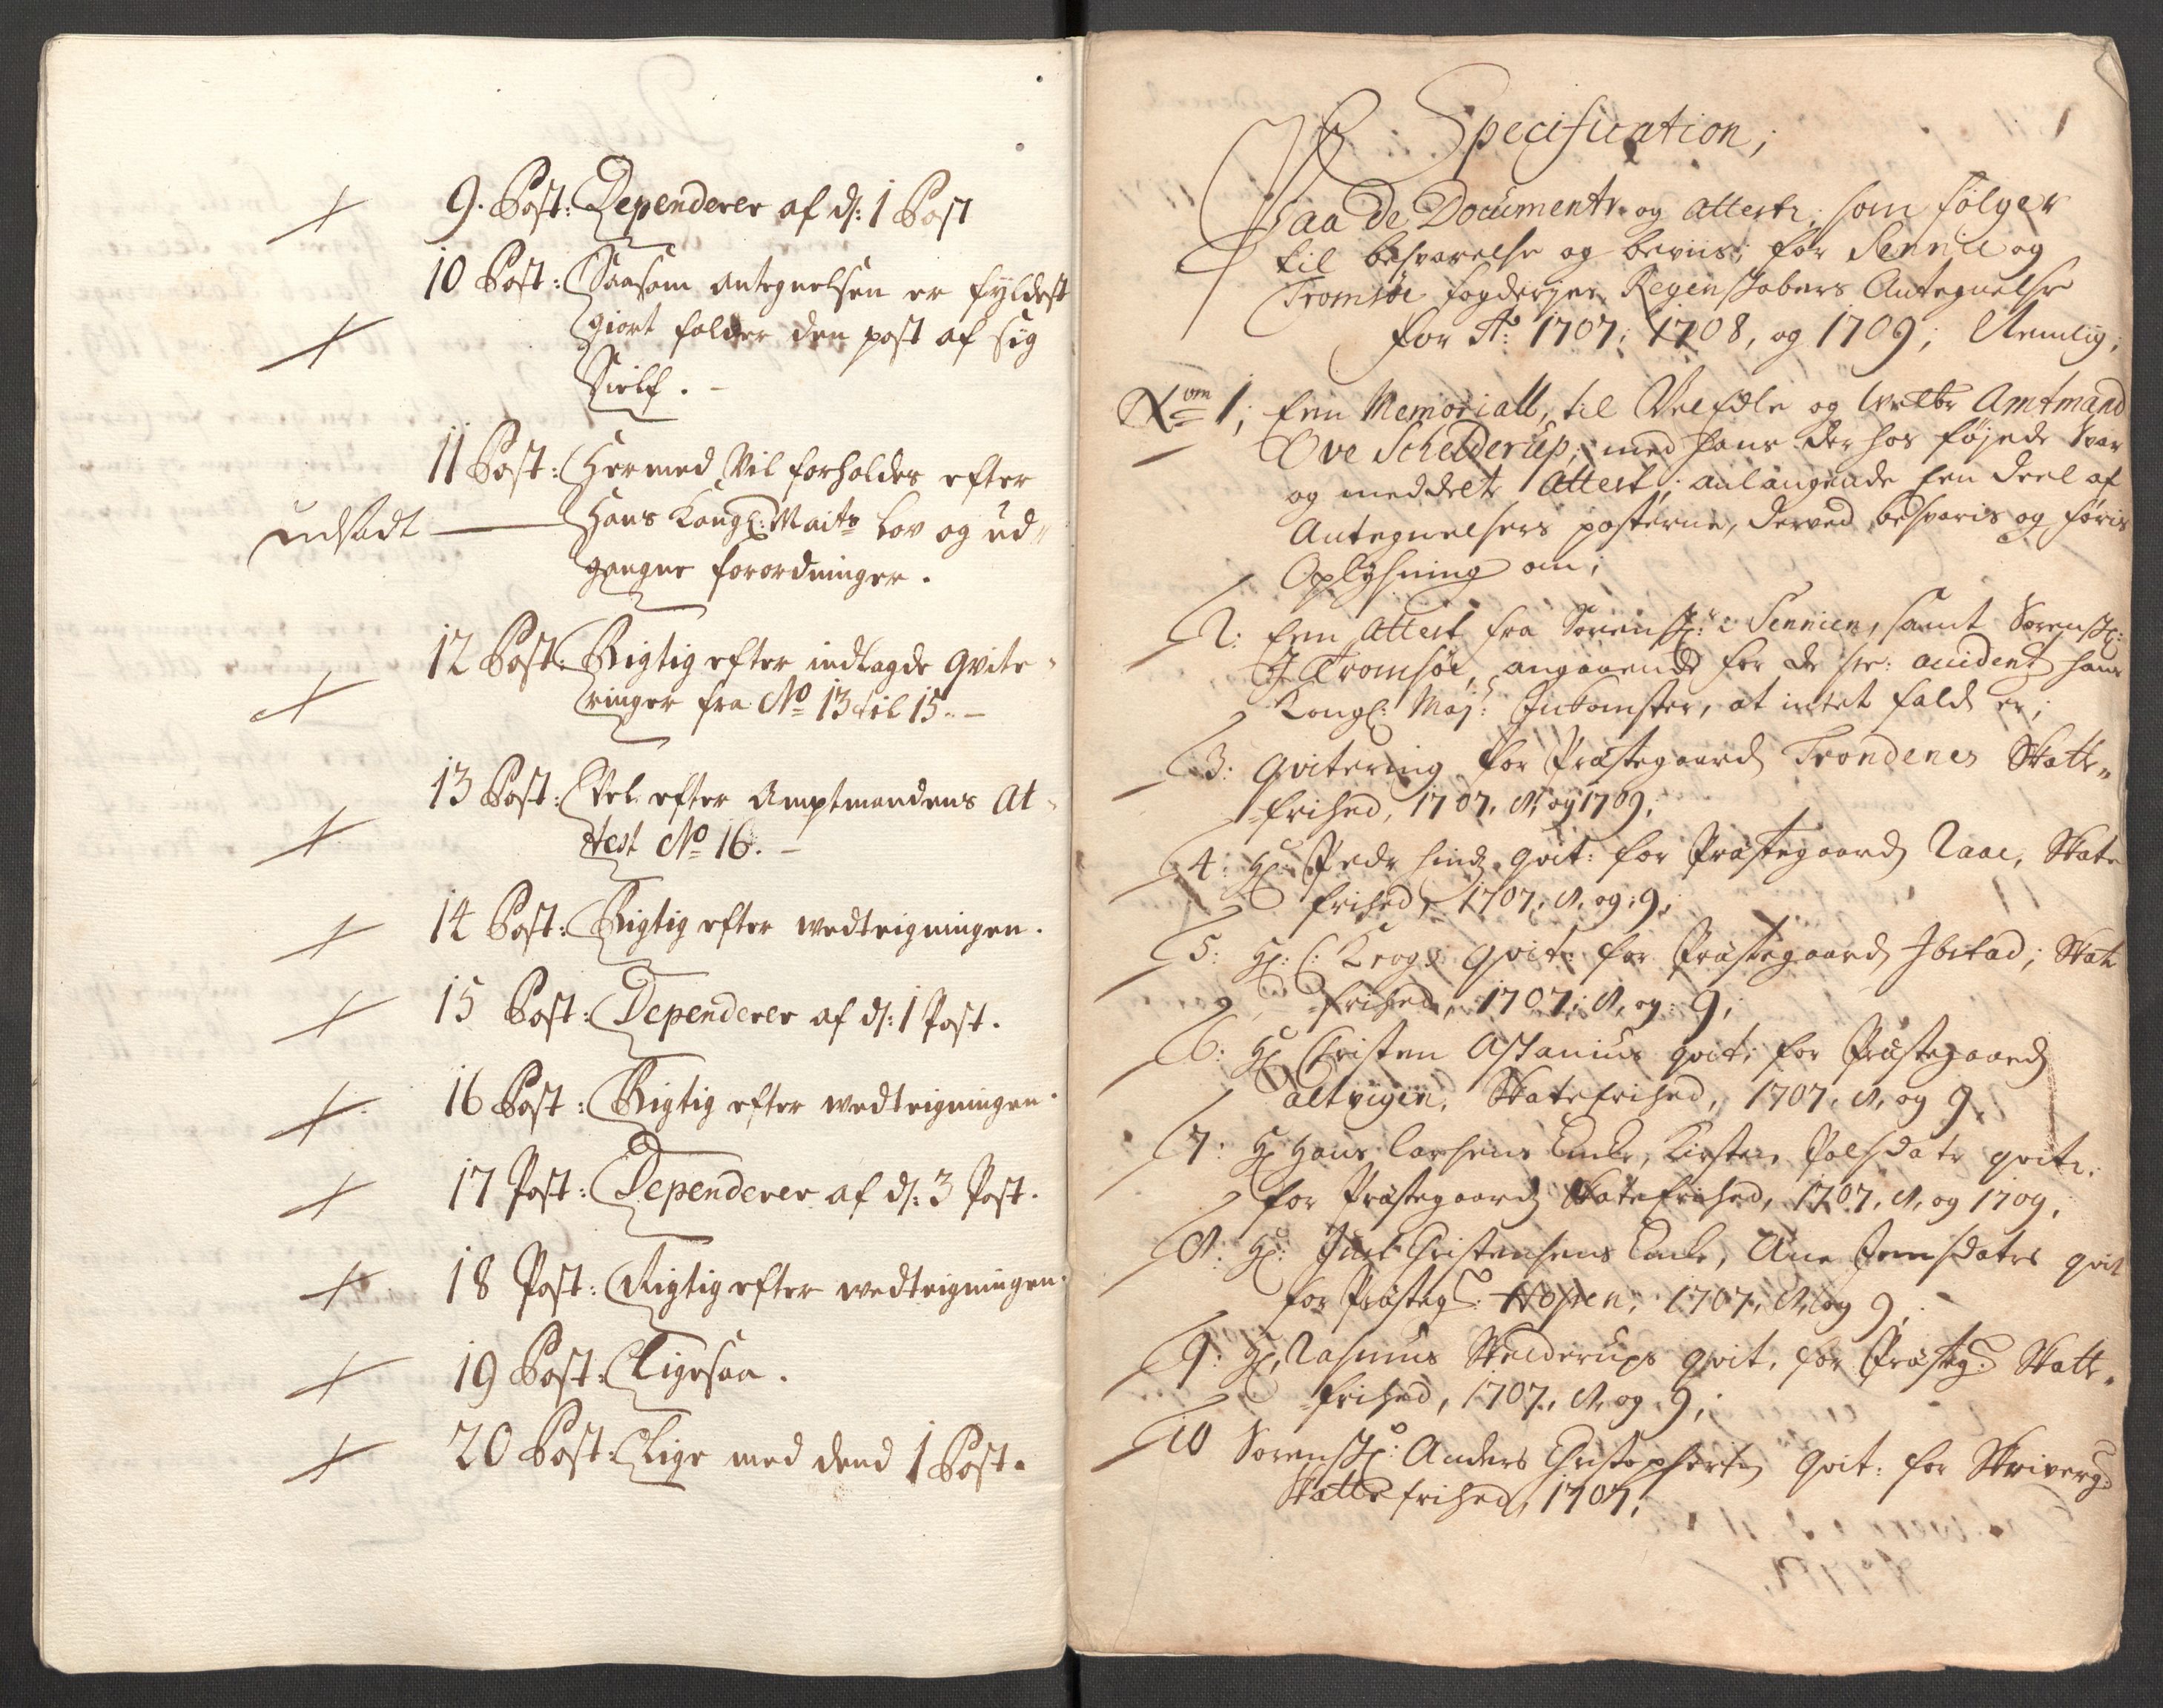 9. Post: Dependerer af ds: 1 Post
10 Post: Saasom antegnelsen er fyldest
giort falder den post af sig
Sielf. -
11 Post: Hermed Vil forholdes efter
udsadt — Hans Kongl: Maits Lov og ud-
gangne forordninger.
12 Post: Rigtig efter indlagde qvite-
ringer fra No 13 til 15. -
13 Post: Vel efter Amptmandens At-
test No 16. -
14 Post: Rigtig efter wedteigningen.
15 Post: Dependerer af ds: 1 Post.
16 Post: Rigtig efter wedteigningen.
17 Post: Dependerer af ds: 3 Post.
18 Post: Rigtig efter wedteigningen.
19 Post: Ligesaa.
20 Post: Lige med dend 1 Post.
1
Specification;
Paa De Documenter og Attester, som følger
til besvarelse og beviis, for Sennie og
Tromsøe fogderjes Regenskabers Antegnelse
for Ao: 1707; 1708, og 1709; Nemlig;
Nom 1; Een Memoriall, til VelEdle og Amtmand
Ove Schelderup, med hans der hos føjede Svar
og meddelte Attest; anlangende Een deel af
Antegnelsers posterne, derved besvaris og føris
Oplysning om;
2: Een Attest fra Sorensk: i Sennien, samt Sorensk:
I Tromsøe, angaaende for de accident hans
Kongl: Maj: Indkomster, at intet fald er;
3: qvitering for Præstegaard Trondenes Skatte-
frihed, 1707, 8, og 1709;
4: Hr: Peder hind qvit: for Præstegaard Saae, Skatte
frihed, 1707, 8, og 9;
5: Hr: C: Krogs qvit: for Præstegaard Ibestad; Skatte
frihed, 1707; 8, og 9;
6: Hr Christen Astanius qvit: for Præstegaard
altvigen, Skattefrihed, 1707, 8, og 9.
7: Hr Hans Larsens Enke, Kirsten Polsdatr qvite:
for Præstegaard Skattefrihed, 1707, 8, og 1709,
8: Hr: Christensens Enke, Ane Jensdatrs qvit
for Præsteg: Hopen, 1707, 8, og 9;
9: Hr, Rasmus Skelderups qvit, for Præsteg: Skatte-
frihed, 1707, 8, og 9;
10 Sorensk: Anders Christophersen qvit: for Skriverg:
Skattefrihed, 1707;